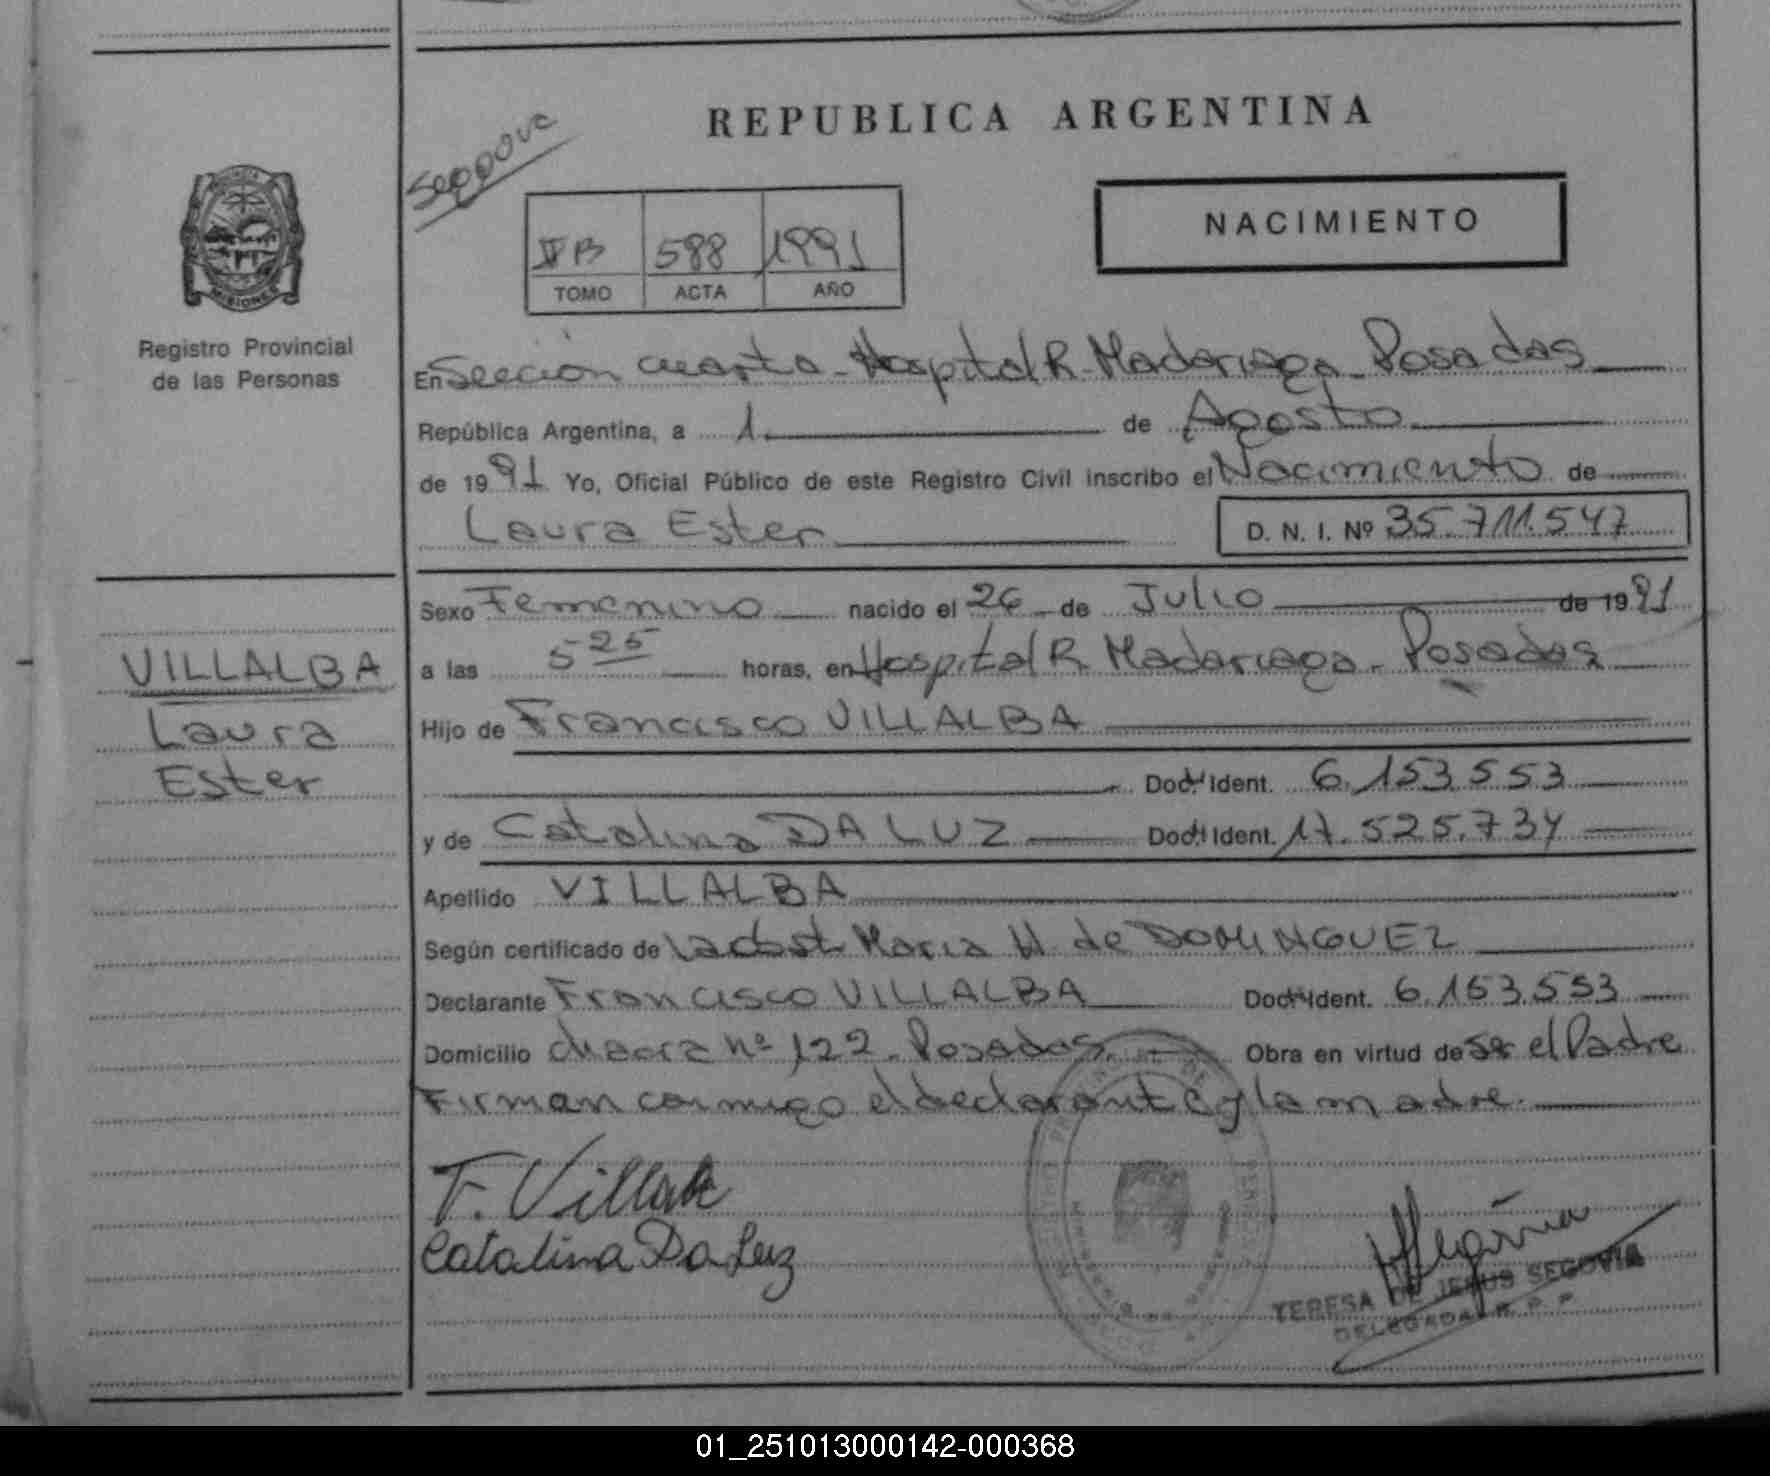 REPUBLICA ARGENTINA
Segovia
NACIMIENTO
588 1991
TOMO ACTA AÑO
MISIONES
Registro Provincial
de las Personas
En Sección cuarta - Hospital R. Madariaga - Posadas
República Argentina, a 1. de Agosto
de 1991 Yo, Oficial Público de este Registro Civil inscribo el Nacimiento de
Laura Ester D. N. I. Nº 35.711.547
Sexo Femenino nacido el 26 de Julio de 1991
a las 5 25 horas, en Hospital R. Madariaga - Posadas
Hijo de Francisco VILLALBA
Doc. Ident. 6.153.553
y de Catalina DA LUZ Doc. Ident. 17.525.734
Apellido VILLALBA
Según certificado de la obst. Maria H. de DOMINGUEZ
Declarante Francisco VILLALBA Doc. Ident. 6.153.553
Domicilio chacra nº 122 - Posadas. Obra en virtud de ser el Padre
Firman conmigo el declarante y la madre.
VILLALBA
Laura
Ester
F. Villalba
Catalina Da Luz
TERESA DE JESUS SEGOVIA
DELEGADA R. P. P.
01_251013000142-000368